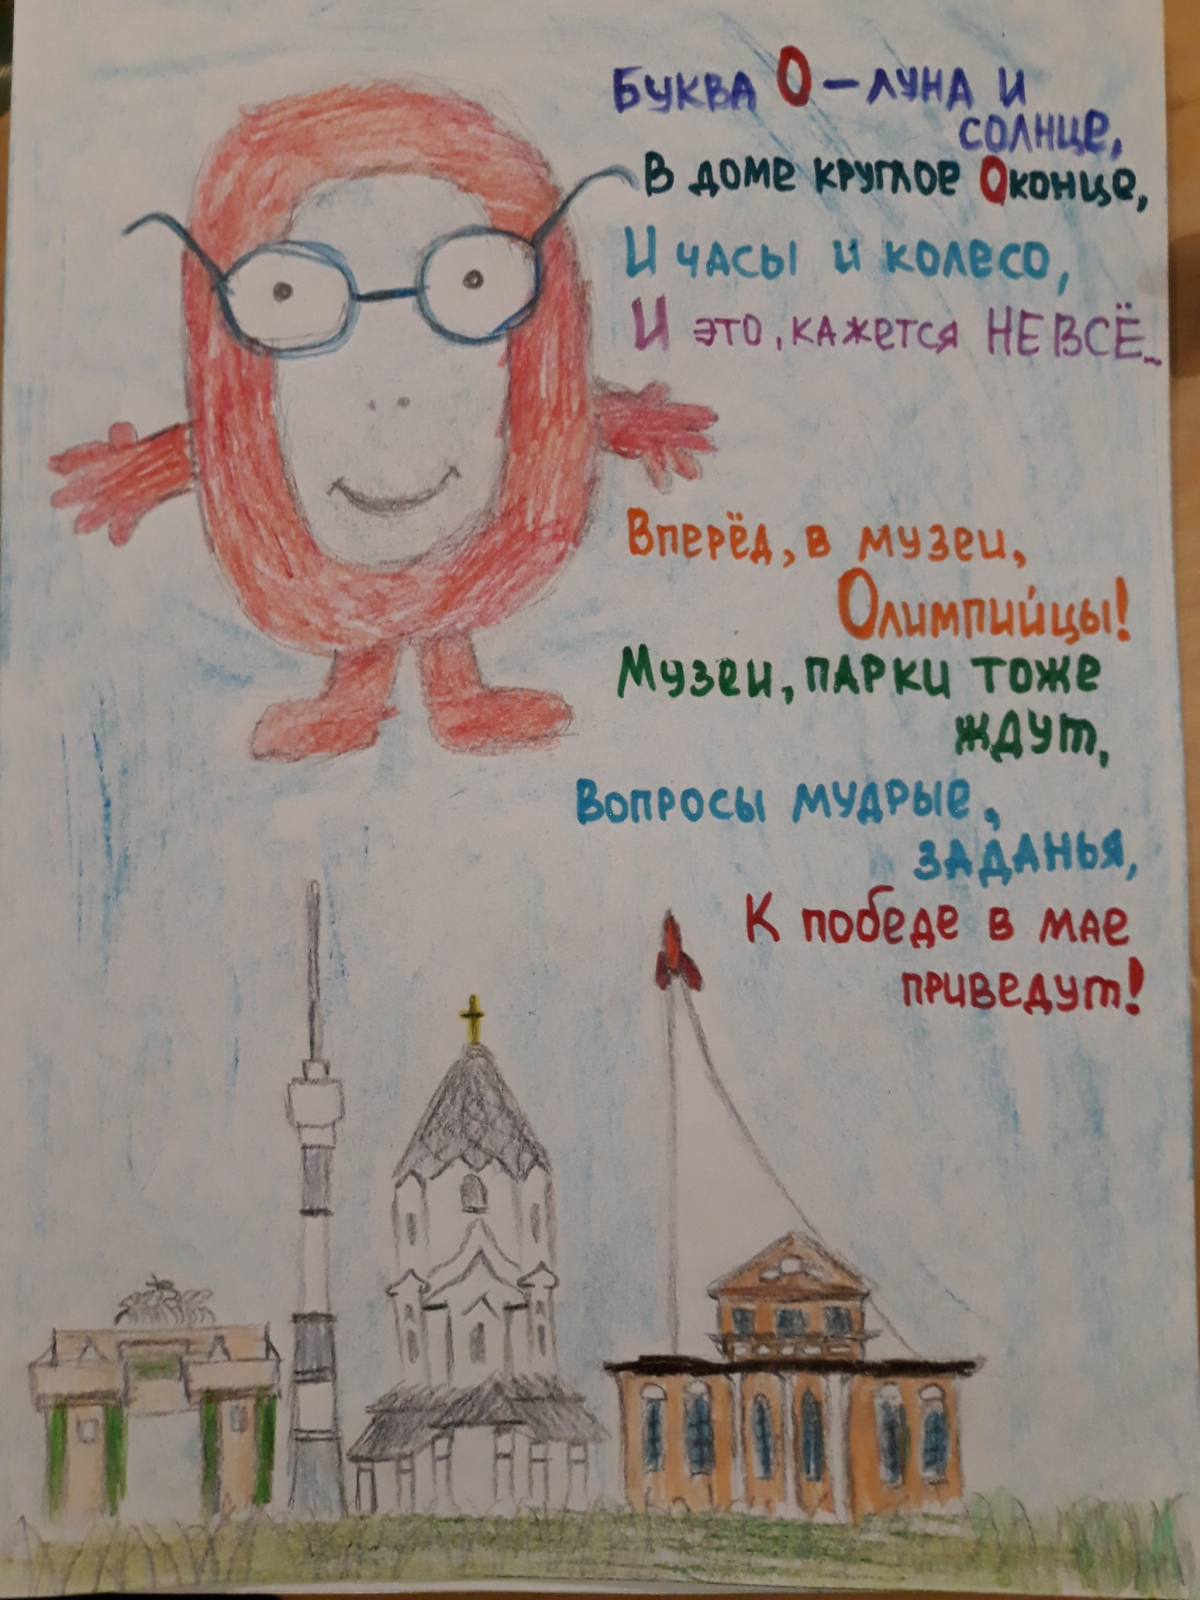 Буква О – луна и
солнце,
В доме круглое Оконце,
И часы и колесо,
И это, кажется НЕ ВСЁ...
Вперёд, в музеи,
Олимпийцы!
Музеи, парки тоже
ждут,
Вопросы мудрые,
заданья,
К победе в мае
приведут!